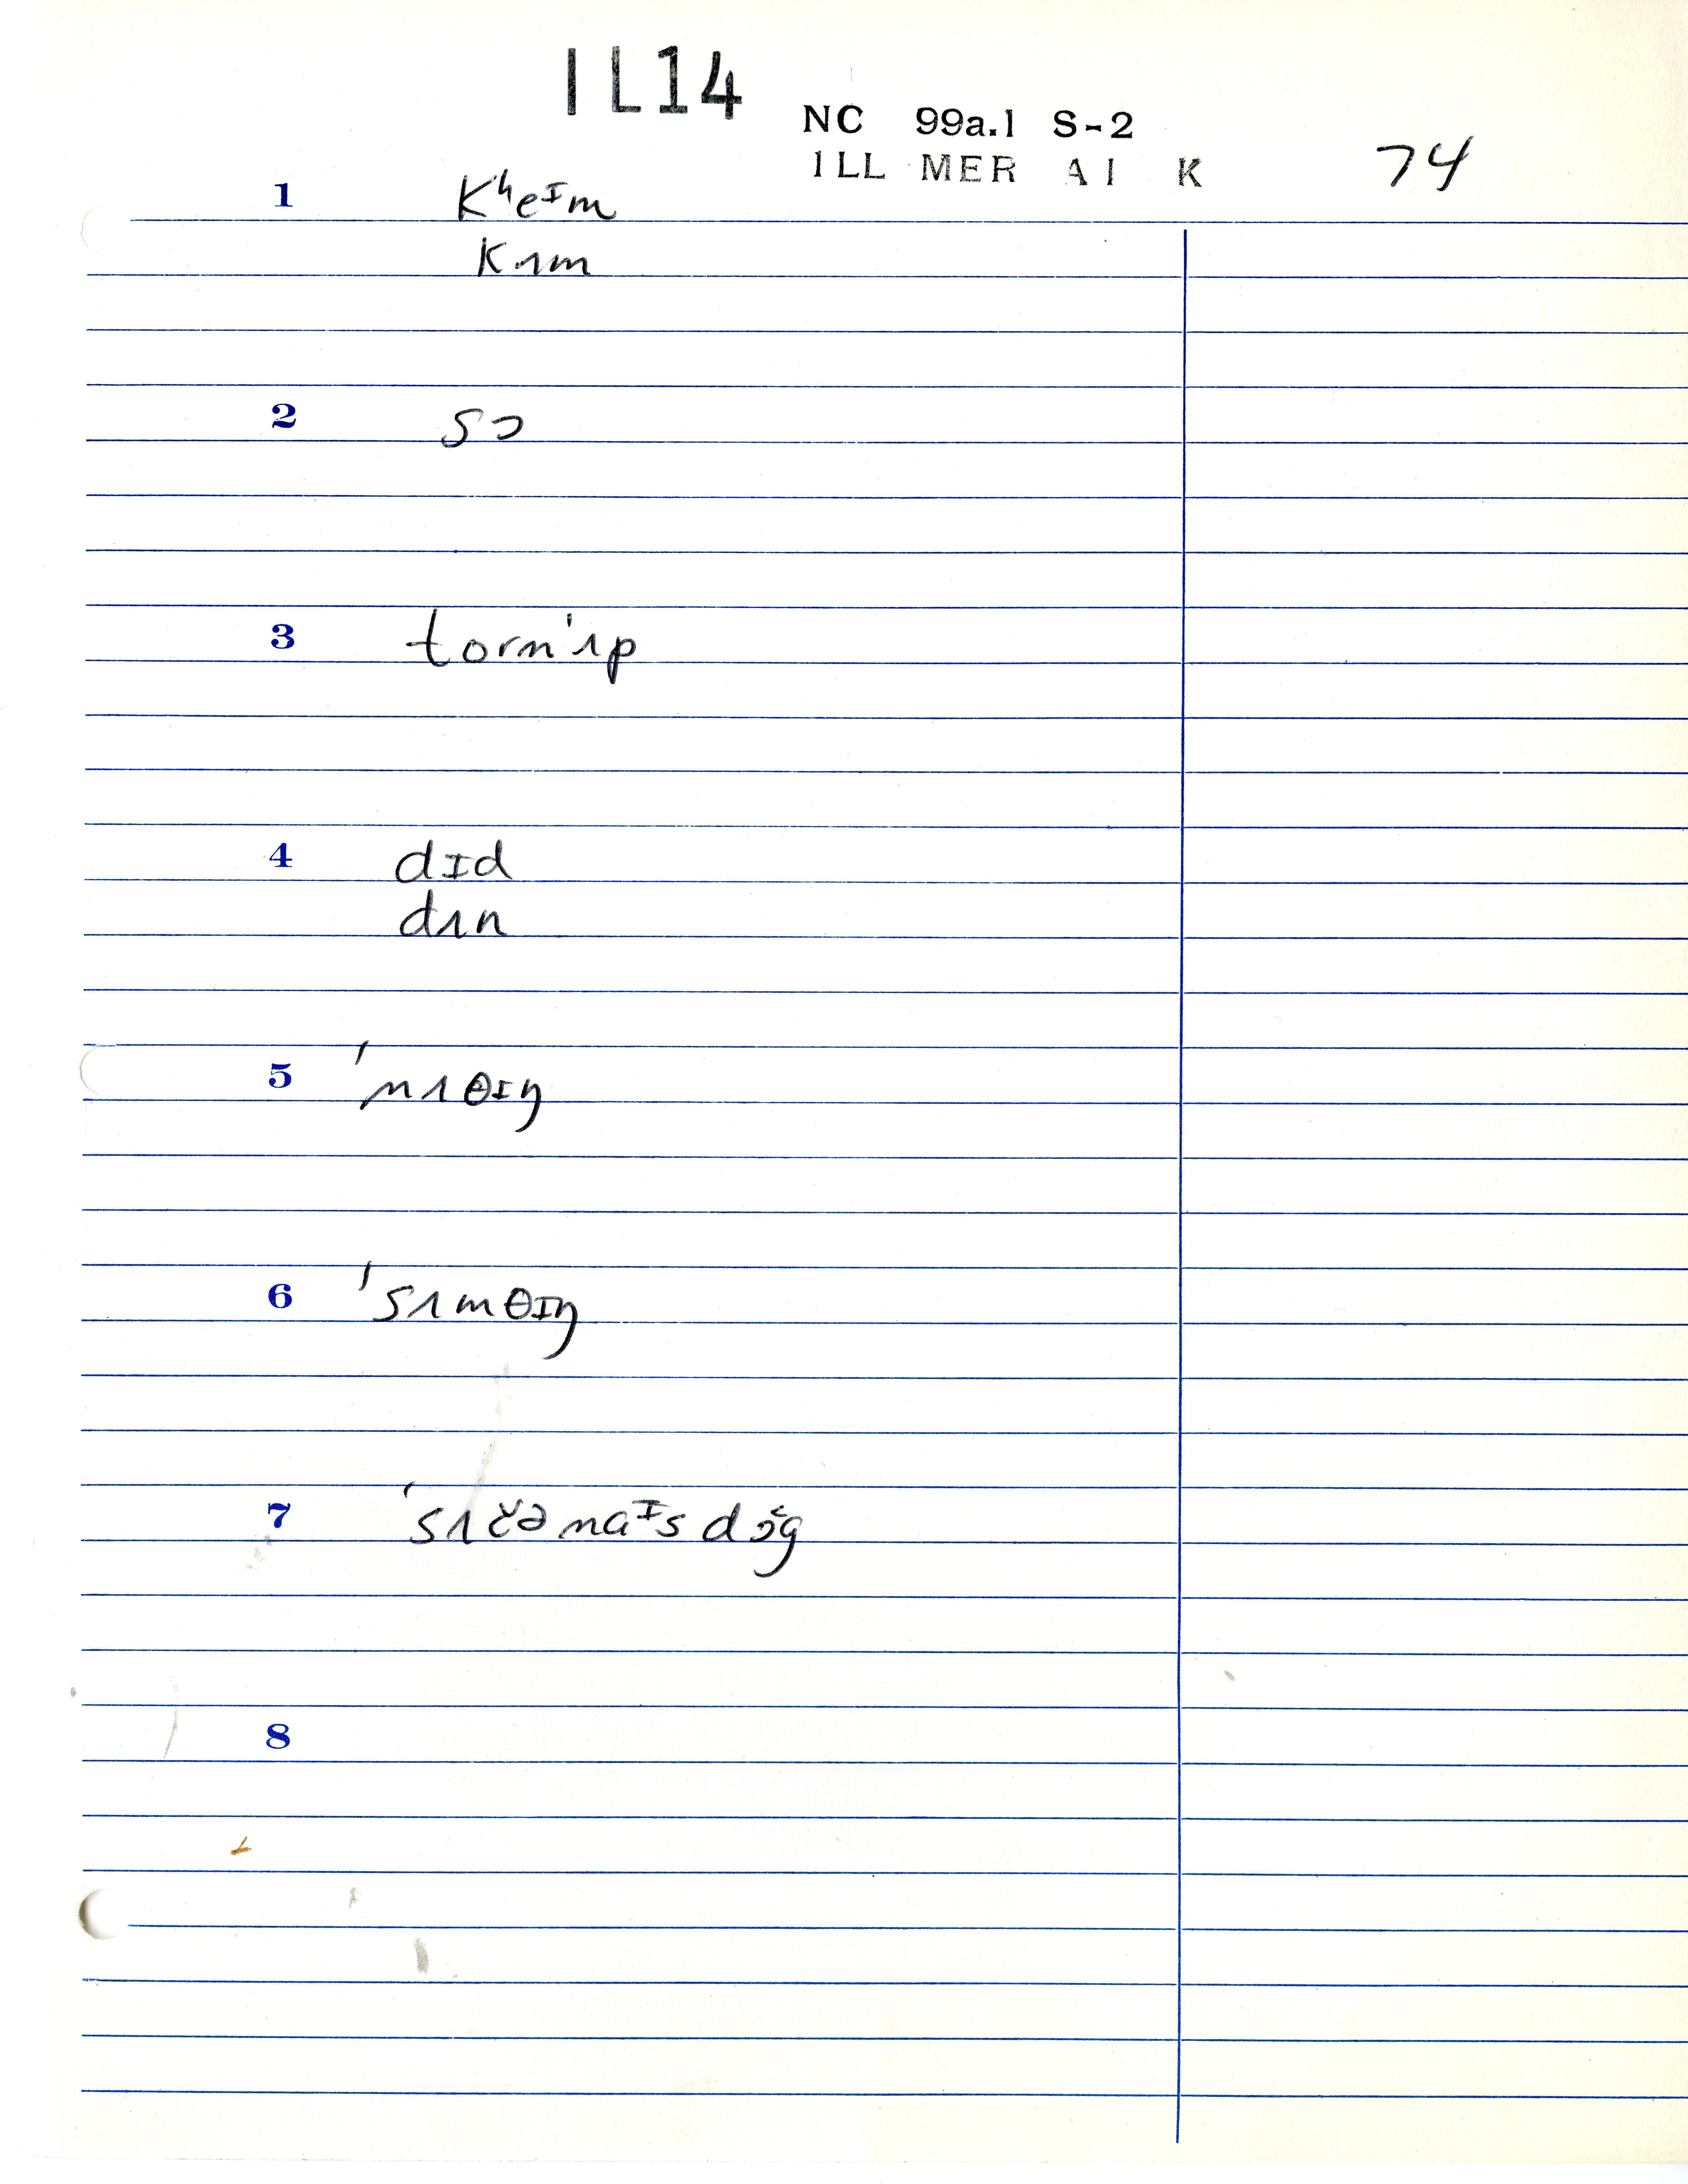 IL14
NC 99a.1 S-2
ILL MER A I K 74
1 Kʰeᴵm
Kʌm
2 sɔ
3 torn'ʌp
4 dɪd
dʌn
5 'nʌθɪŋ
6 'sʌmθɪŋ
7 'sʌčə naᴵs dɔ̌g
8